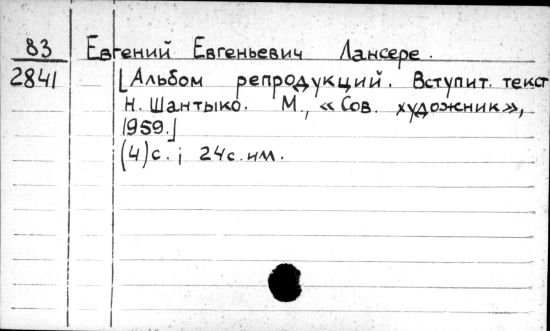 83 Евгений Евгеньевич Лансере.
2841 [Альбом репродукций. Вступит. текст
Н. Шантыко. М., «Сов. художник»,
1959.]
(4)с.; 24с. им.